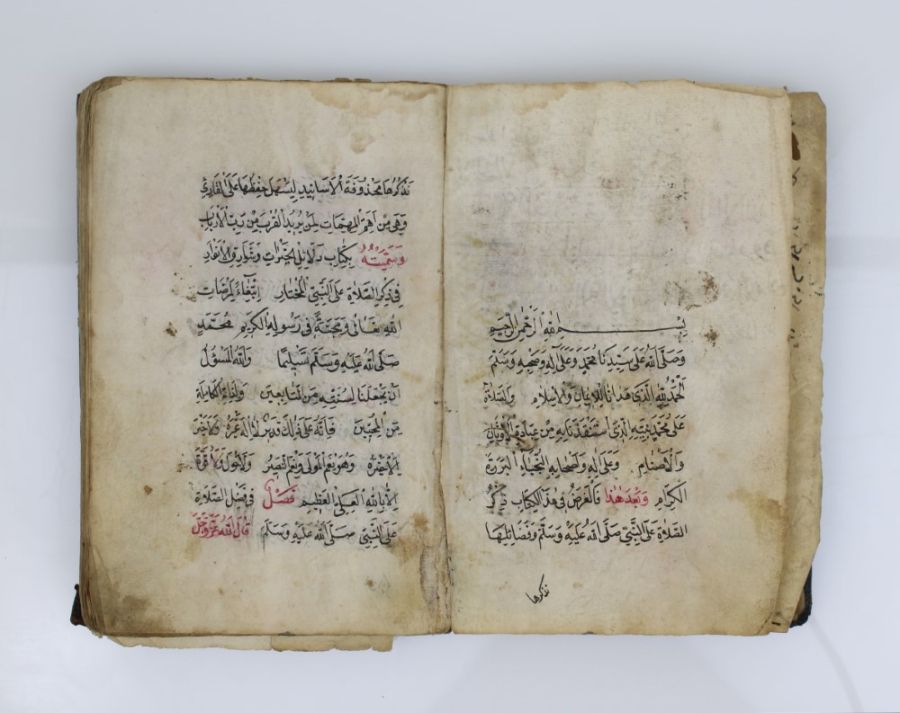 بسم الله الرحمن الرحيم
وصلى الله على سيدنا محمد وعلى آله وصحبه وسلم
الحمد لله الذي هدانا للإيمان والإسلام والصلاة
على محمد نبيه الذي استنقذنا به من عبادة الأوثان
والأصنام وعلى آله وأصحابه النجباء البررة
الكرام وبعد هذا فالغرض في هذا الكتاب ذكر
الصلاة على النبي صلى الله عليه وسلم وفضائلها
نذكرها
نذكرها محذوفة الأسانيد ليسهل حفظها على القارئ
وهي من أهم المهمات لمن يريد القرب من رب الأرباب
وسميته بكتاب دلائل الخيرات وشوارق الأنوار
في ذكر الصلاة على النبي المختار ابتغاء لمرضات
الله تعالى ومحبة في رسوله الكريم محمد
صلى الله عليه وسلم تسليما والله المسؤل
أن يجعلنا لسنته من التابعين ولذاته الكاملة
من المحبين فإنه على ذلك قدير لا إله غيره ولا خير
إلا خيره وهو نعم المولى ونعم النصير ولا حول ولا قوة
إلا بالله العلي العظيم فصل في فضل الصلاة
على النبي صلى الله عليه وسلم قال الله عز وجل